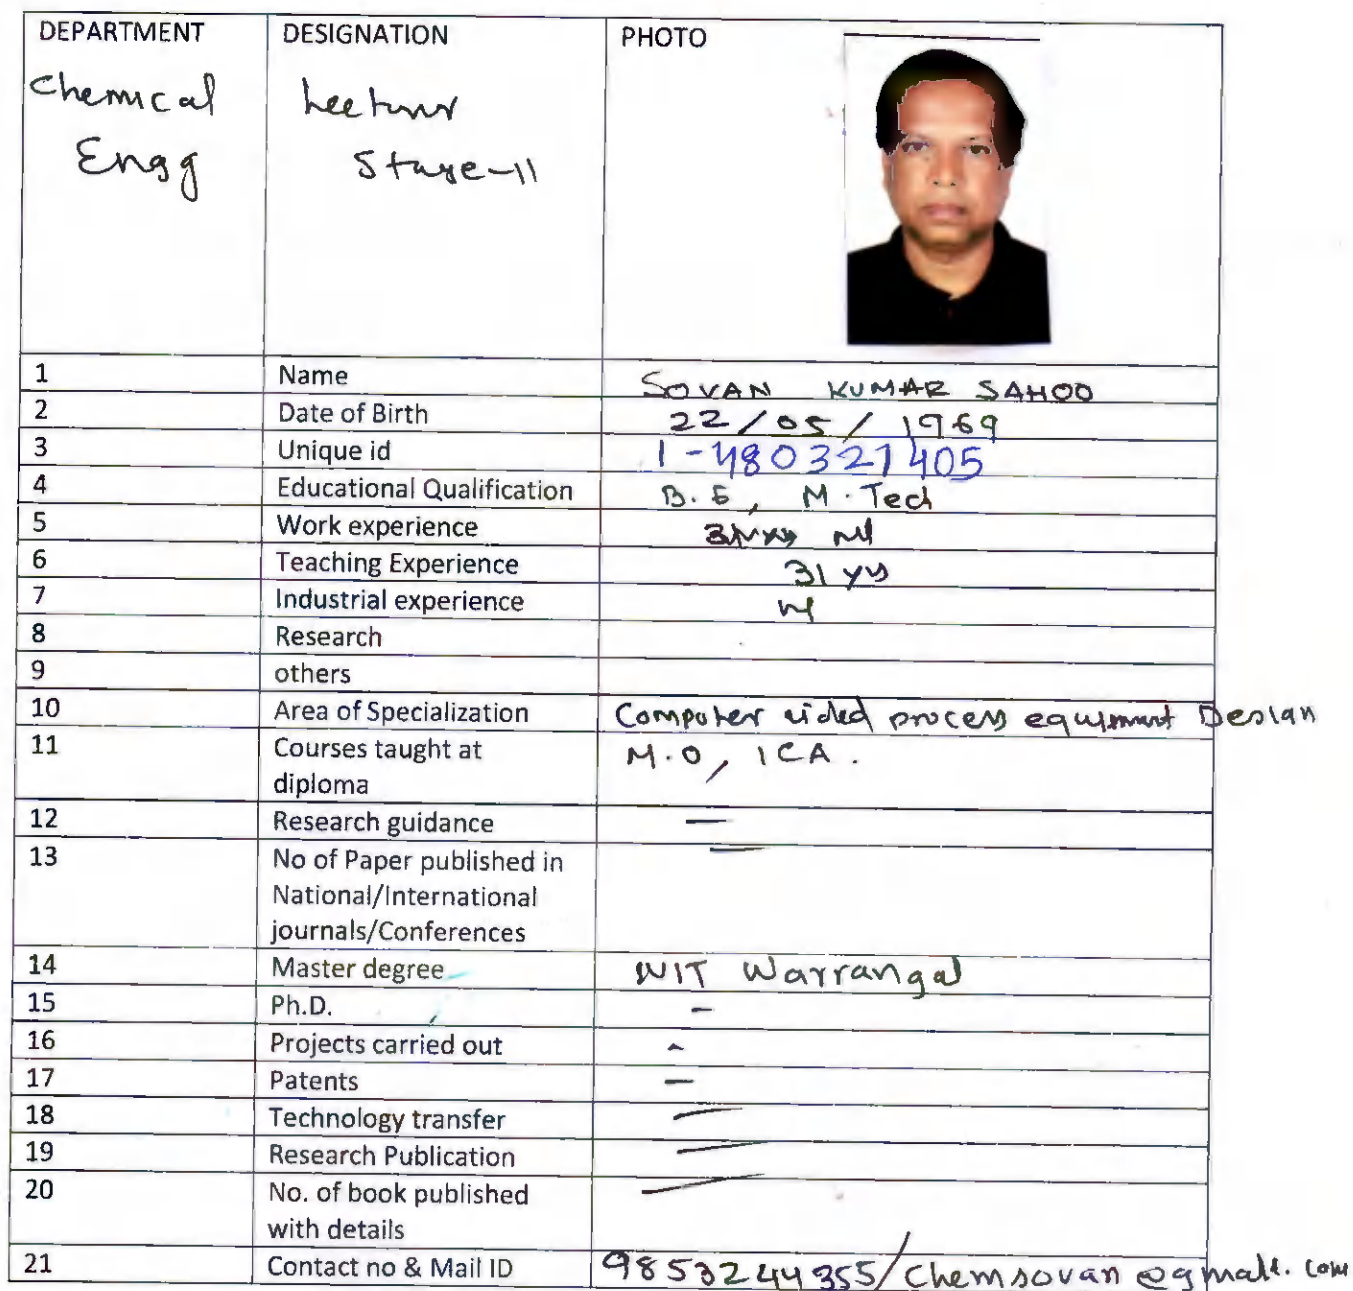 DEPARTMENT DESIGNATION PHOTO
Chemical Lecturer
Engg Stage-II
1 Name SOVAN KUMAR SAHOO
2 Date of Birth 22/05/1969
3 Unique id 1-480321405
4 Educational Qualification B.E, M.Tech
5 Work experience
6 Teaching Experience 31 yrs
7 Industrial experience
8 Research
9 others
10 Area of Specialization Computer aided process equipment Design
11 Courses taught at M.O, ICA.
diploma
12 Research guidance —
13 No of Paper published in —
National/International
journals/Conferences
14 Master degree NIT Warrangal
15 Ph.D. -
16 Projects carried out -
17 Patents —
18 Technology transfer —
19 Research Publication —
20 No. of book published —
with details
21 Contact no & Mail ID 9853244355/chemsovan@gmail.com